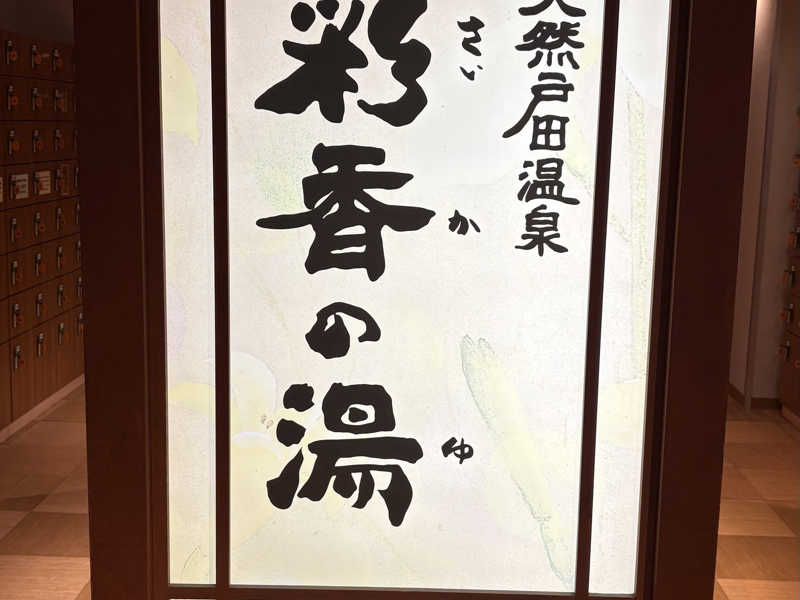 天然戸田温泉
彩香の湯
さいかゆ